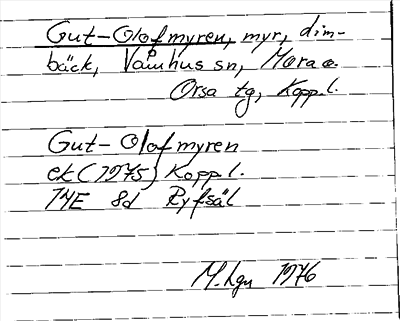 Gut-Olofmyren, myr, dim-
bäck, Våmhus sn, Mora o.
Orsa tg, Kopp.l.
Gut-Olofmyren
ek (1975) Kopp.l.
14E 8d Ryfsäl
M.hgn 1976